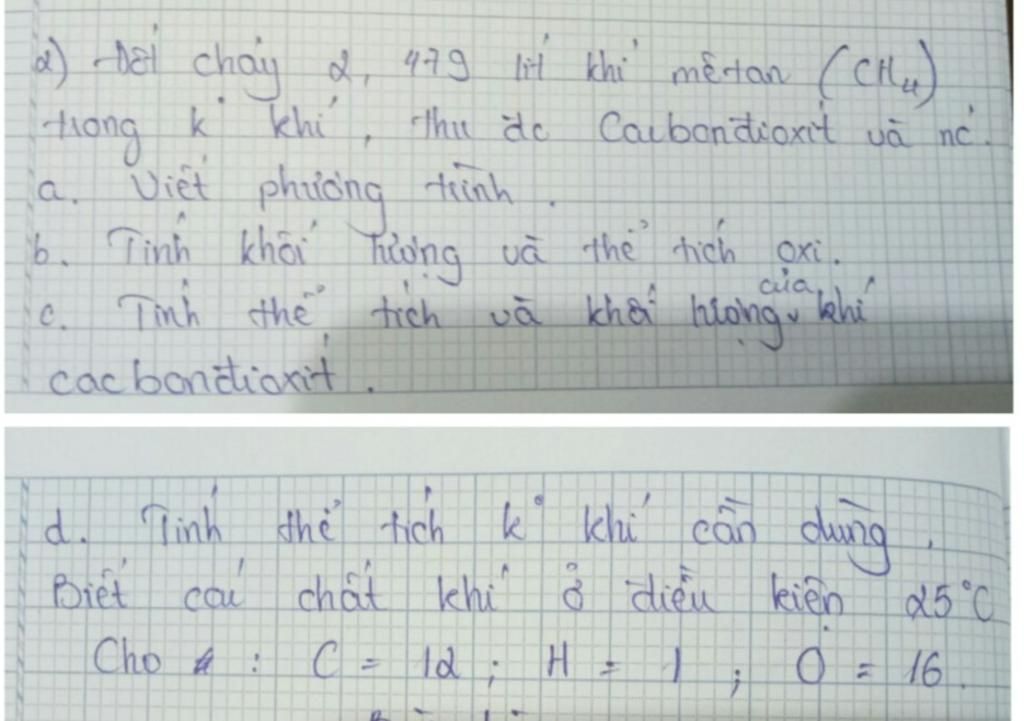 2) Đốt cháy 2,479 lít khí mêtan (CH4)
trong k khí, thu đc Cacbonđioxit và nc.
a. Viết phương trình.
b. Tính khối lượng và thể tích oxi.
c. Tính thể tích và khối lượng của khí
cacbonđioxit.
d. Tính thể tích k khí cần dùng.
Biết các chất khí ở điều kiện 25°C
Cho : C = 12 ; H = 1 ; O = 16.